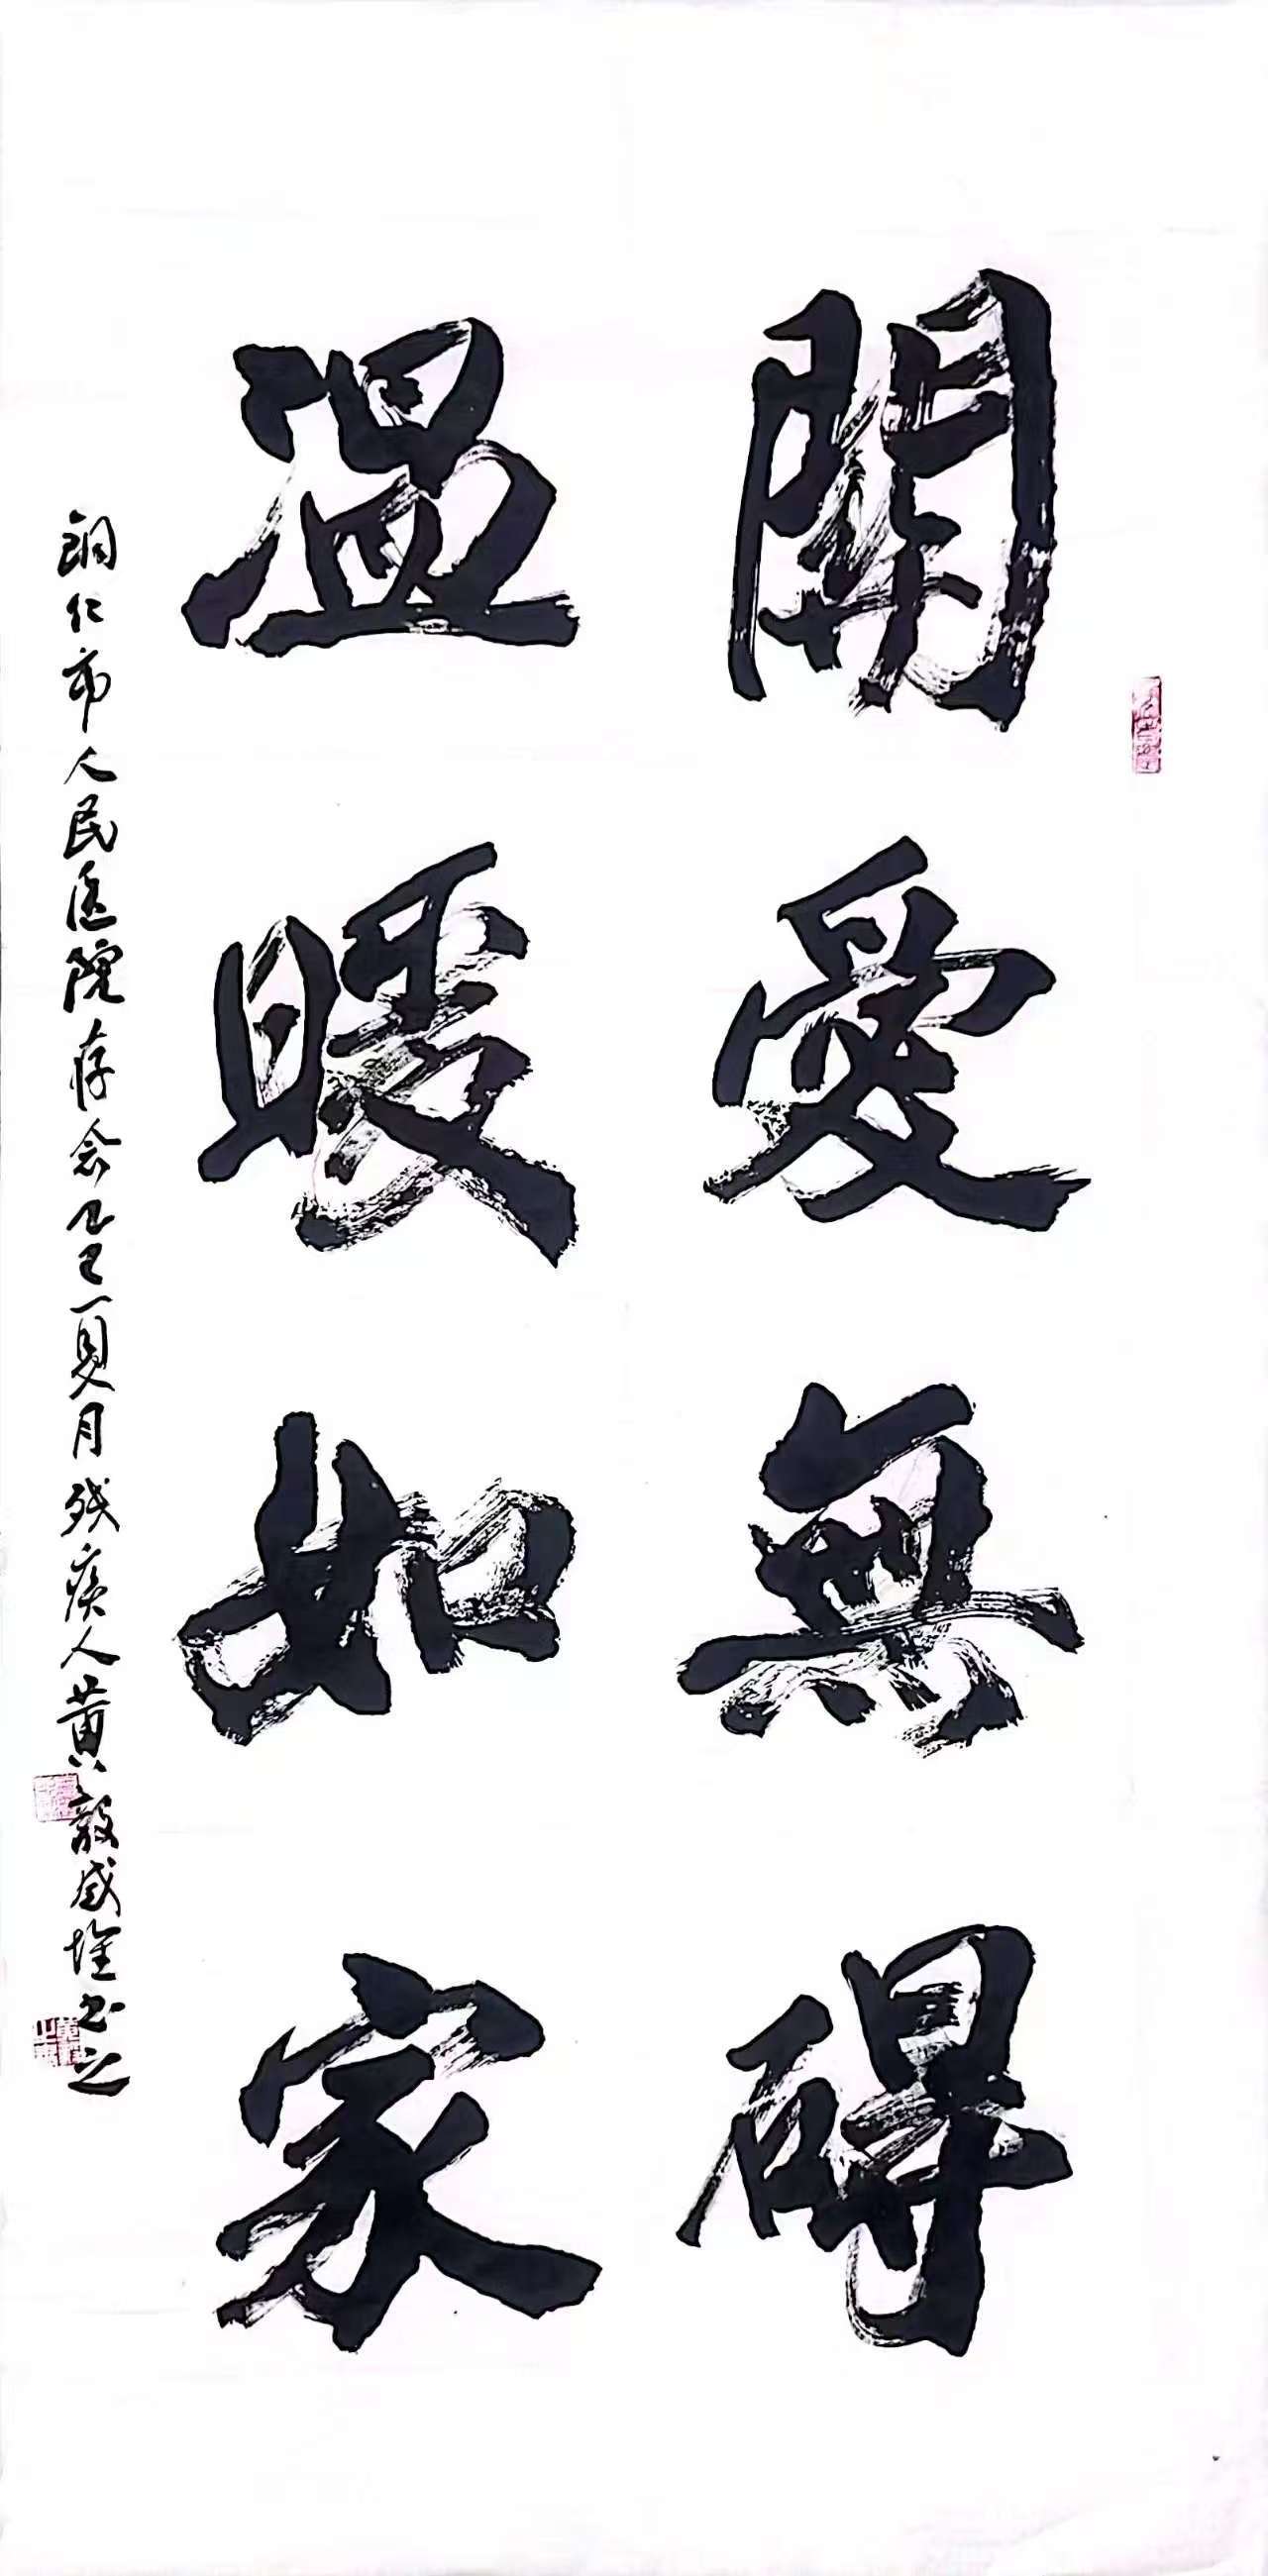 關愛無礙
溫暖如家
銅仁市人民医院存念乙巳夏月残疾人黄敢感堦书之